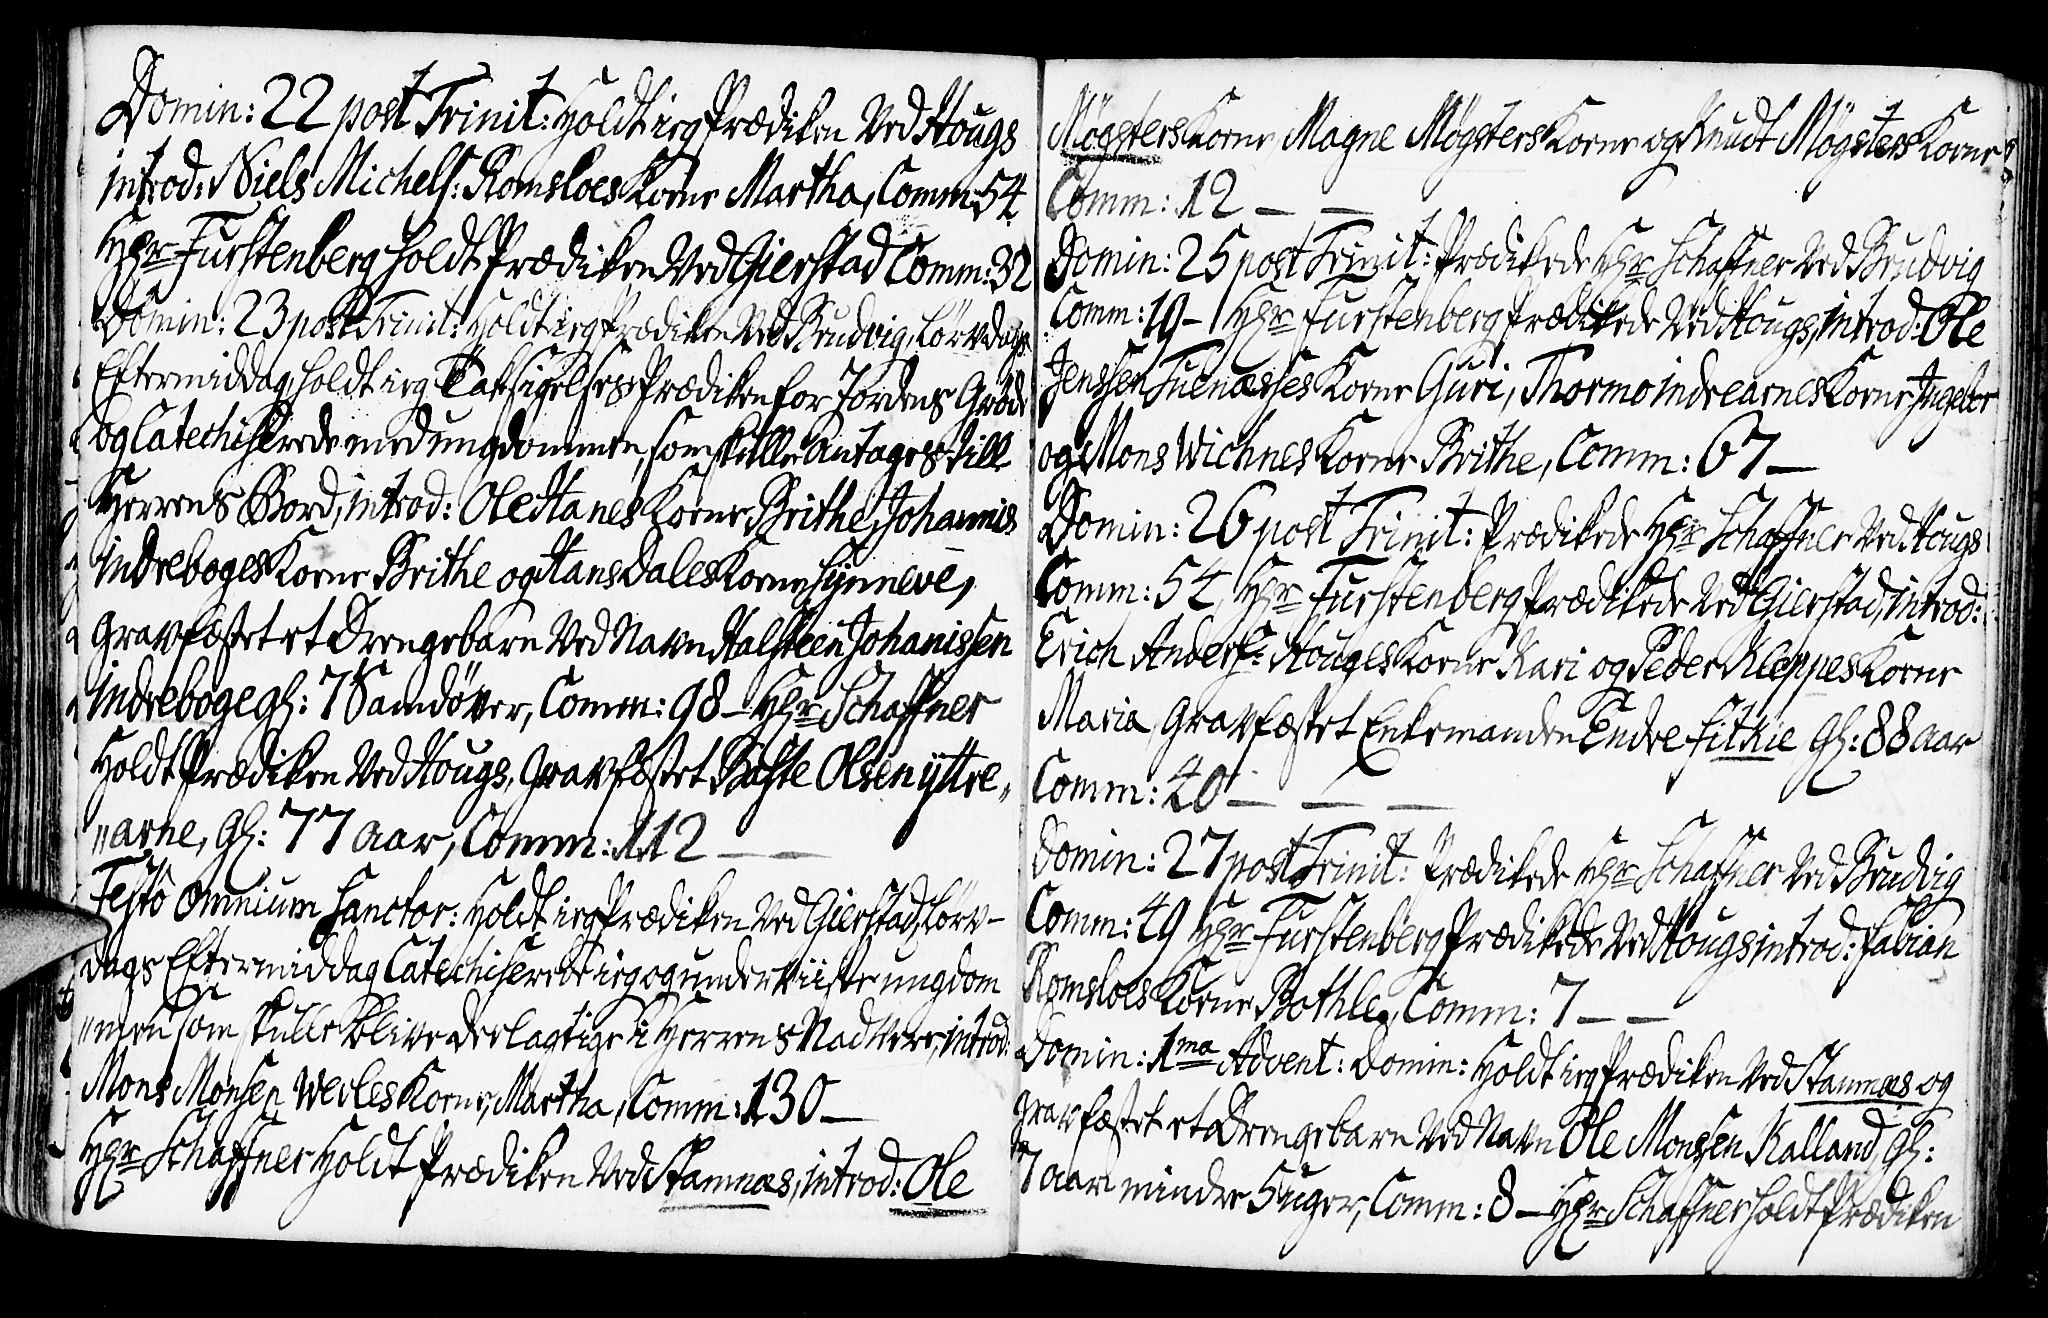 Domin: 22 post Trinit: Holdt ieg Prædiken Ved Hougs
introd: Niels Michels: Romsloes Kone Martha, Comm: 54
Hr: Furstenberg holdt Prædiken Ved Gierstad Comm: 32
Domin: 23 post Trinit: Holdt ieg Prædiken Ved Brudvig, Lövdags
Eftermiddag, holdt ieg Taksigelses Prædiken for Jordens Gröde
og Catechiserede med ungdommen, som skulle Antages till
Herrens Bord, introd: Ole Hanes Kone Brithe, Johannis
indreboges Kone Brithe og Hans Dales Kone Synneve,
Gravfæstet et Drengebarn Ved Navn Halsteen Johanissen
indreboge gl: 7 Samdöner, Comm: 98 – Hr: Schaffner
Holdt Prædiken Ved Hougs, Gravfæstet Baste Olsen yttre„
„arne, gl: 77 aar, Comm: 112 – –
Festo Omnium Sanctor: Holdt ieg Prædiken Ved Gierstad, Lörv–
dags Eftermiddag Catechiserede ieg og underviiste ungdom
„men som skulle blive deelagtige i Herrens Nadvere, introd:
Mons Monsen Weeles Kone, Martha, Comm: 130 –
Hr: Schaffner Holdt Prædiken Ved Stamnæs, introd: Ole
Mögsters Kone, Magne Mögsters Kone og Knudt Mögsters Kone
Comm: 12 – –
Domin: 25 post Trinit: Prædikede Hr: Schaffner Ved Brudvig
Comm: 19 – Hr: Furstenberg Prædikede Ved Hougs, introd: Ole
Jenssen Tuenæsses Kone Guri, Thormo indrearnes Kone Ingebor
og Mons Wichnes Kone Brithe, Comm: 67 –
Domin: 26 post Trinit: Prædikede Hr: Schaffner Ved Hougs
Comm: 54, Hr: Furstenberg Prædikede Ved Gierstad, introd:
Erich Anders: Houges Kone Kari og Peder Kleppes Kone
Maria, Gravfæstet Enkemanden Endre Fitkie gl: 88 aar
Comm: 40 – – –
Domin: 27 post Trinit: Prædikede Hr: Schaffner Ved Brudvig
Comm: 49 Hr: Furstenberg Prædikede Ved Hougs introd: Fabian
Romsloes Kone Bothle, Comm: 7 – –
Domin: 1ma Advent: Domin: Holdt ieg Prædiken Ved Stamnæs og
gravfæstet et Drengebarn Ved Navn Ole Monssen Kalland, gl:
7 aar mindre 5 uger, Comm: 8 – Hr: Schaffner holdt Prædiken